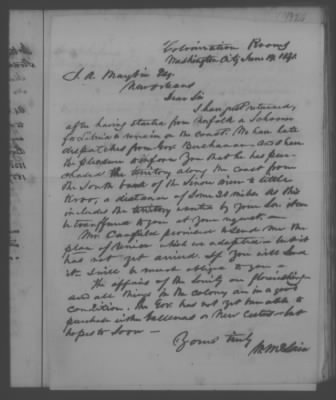 Colonization Rooms
Washington City June 19 1841
J. A. Maybin Esq.
New Orleans
Dear Sir
I have just returned,
after having started from Norfolk a Schooner
for Liberia to remain on the coast. We have late
despatches from Gov Buchanan and I have
the pleasure to inform you that he has pur-
chased the territory along the coast from
the South bank of the Sinou river to little
Kroo, a distance of some 30 miles As this
includes the territory wanted by your Soc it can
be transferred to you at your request
Mr. Canfield promised to send me the
plan of Union which we adopted but it
has not yet arrived. If you will send
it I will be much obliged to you
The affairs of the Society are flourishing
and all things in the colony are in a good
condition. The Gov has not yet been able to
purchase either Gallenas or New Cesters but
hopes to soon
Yours truly